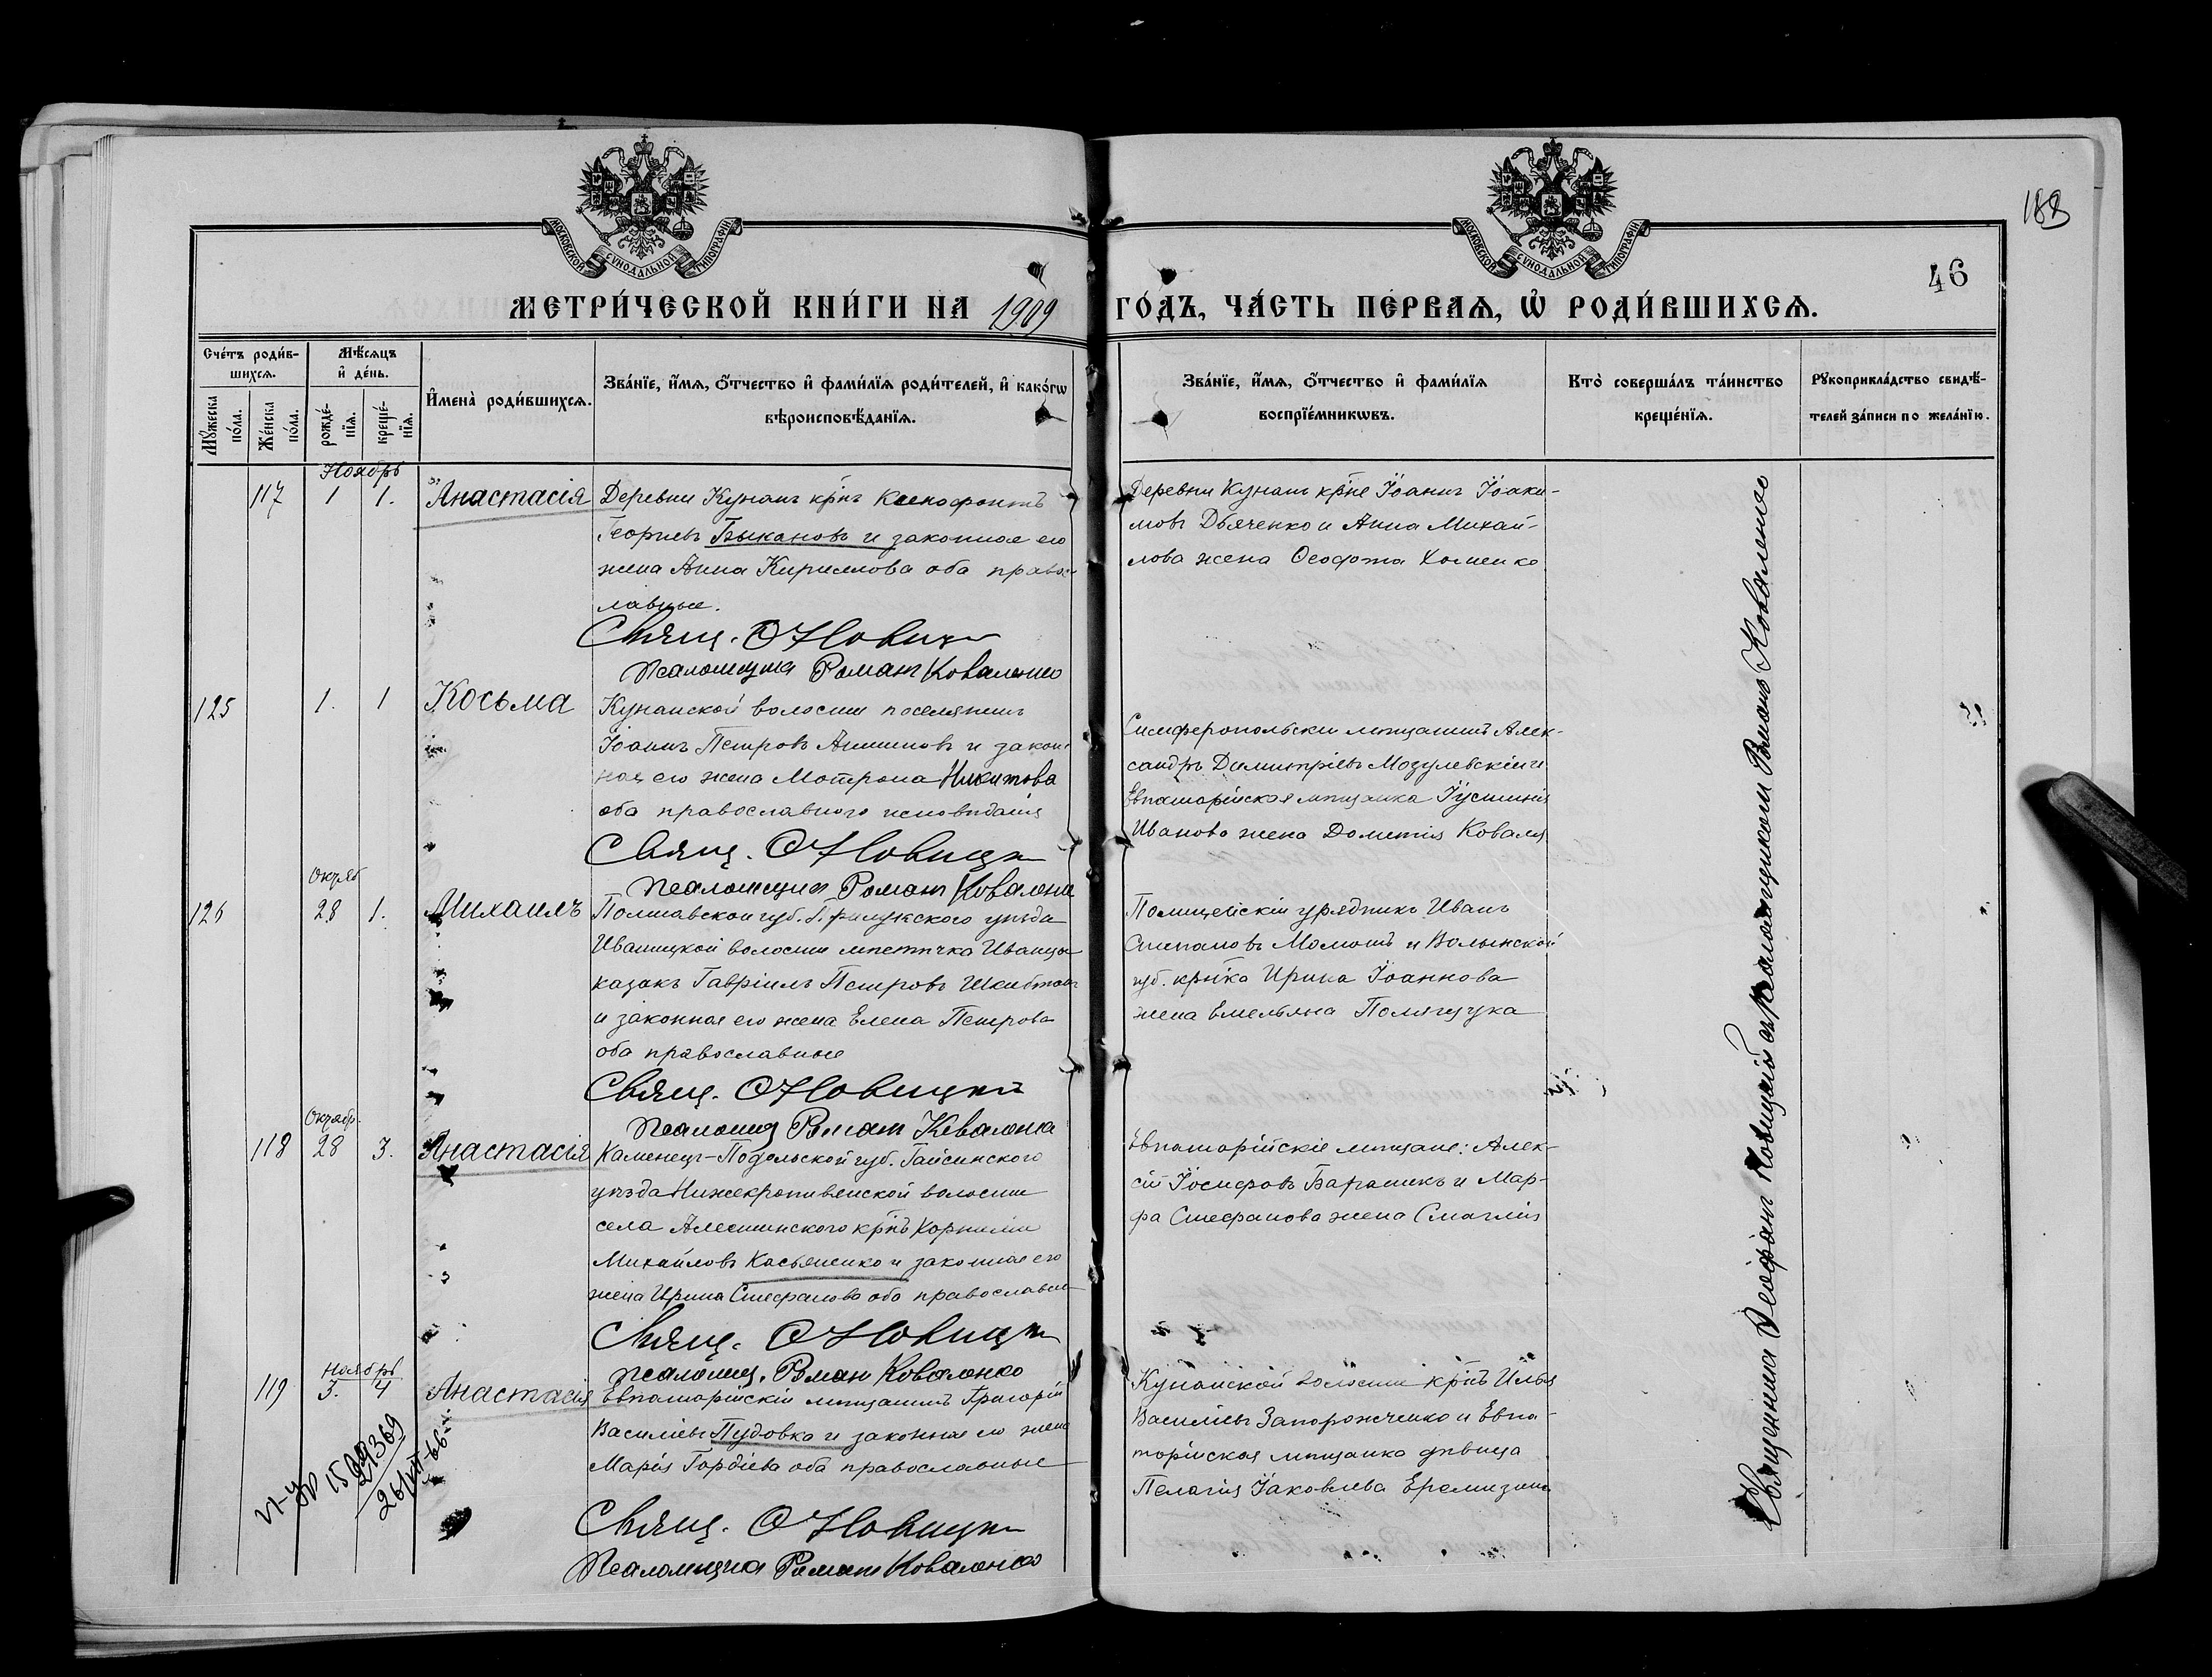 188
46
МОСКОВСКОЙ СУНОДАЛЬНОЙ ТИПОГРАФІИ
МОСКОВСКОЙ СУНОДАЛЬНОЙ ТИПОГРАФІИ
МЕТРИ́ЧЕСКОЙ КНИ́ГИ НА 1909 ГО́ДЪ, ЧА́СТЬ ПЕ́РВАѦ, Ѡ҆ РОДИ́ВШИХСѦ.
Сче́тъ роди́в-
шихсѧ.
Мꙋ́жеска по́ла.
Же́нска по́ла.
Мѣ́сѧцъ
и҆ де́нь.
рожде́-
нїѧ.
креще́-
нїѧ.
И҆мена̀ роди́вшихсѧ.
Зва́нїе, и҆́мѧ, ѻ҆́тчество и҆ фами́лїѧ роди́телей, и҆ како́гѡ
вѣроисповѣ́данїѧ.
Зва́нїе, и҆́мѧ, ѻ҆́тчество и҆ фами́лїѧ
воспрїе́мникѡвъ.
Кто̀ соверша́лъ та́инство
креще́нїѧ.
Рꙋкоприкла́дство свидѣ́-
телей за́писи по жела́нїю.
Ноябрь
117 1 1. Анастасія
Деревни Кунанъ крнъ Ксенофонтъ
Георгіевъ Быкановъ и законная его
жена Анна Кириллова оба правос-
лавные.
Свящ. Ѳ Новицкій
Псаломщикъ Романъ Коваленко
Деревни Кунанъ крне Іоаннъ Іоаки-
мовъ Дьяченко и Анна Михай-
лова жена Ѳеодота Хоменко
125 1. 1 Косьма
Кунанской волости поселянинъ
Іоаннъ Петровъ и закон-
ная его жена Матрона Никитова
оба православного исповѣданія
Свящ. Ѳ Новицкій
Псаломщикъ Романъ Коваленко
Симферопольскій мѣщанинъ Алек-
сандръ Димитріевъ Мозулевскій и
Евпаторійская мѣщанка Іустинія
Иванова жена Дометія Коваля
Октяб
126 28 1. Михаилъ
Полтавской губ. Прилукского уѣзда
Иваницкой волости мѣстечка Иваницы
казакъ Гавріилъ Петровъ
и законная его жена Елена Петрова
оба православные
Свящ. Ѳ Новицкій
Псаломщ Романъ Коваленко
Полицейскій урядникъ Иванъ
Степановъ Момотъ и Волынской
губ. крнка Ирина Іоаннова
жена Емельяна Полящука
Октябр.
118 28 3. Анастасія
Каменецъ-Подольской губ. Гайсинского
уѣзда Нижекропивенской волости
села крнъ Корнилій
Михайловъ Касьяненко и законная его
жена Ирина Стефанова оба православные
Свящ. Ѳ Новицкій
Псаломщ. Роман Коваленко
Евпаторійскіе мѣщане: Алек-
сій Іосифовъ и Мар-
фа Стефанова жена Смаглія
Ноябрь
119 3. 4 Анастасія
Евпаторійскій мѣщанинъ Григорій
Василіевъ Пудовко и законная его жена
Марія Гордіева оба православные
Свящ. Ѳ Новицкій
Псаломщикъ Романъ Коваленко
Кунанской волости крнъ Илья
Василіевъ Запорожченко и Евпа-
торійская мѣщанка дѣвица
Пелагія Іаковлева
21369
26/VII-66
Священникъ Ѳеофанъ Новицкій съ псаломщикомъ Романъ Коваленко